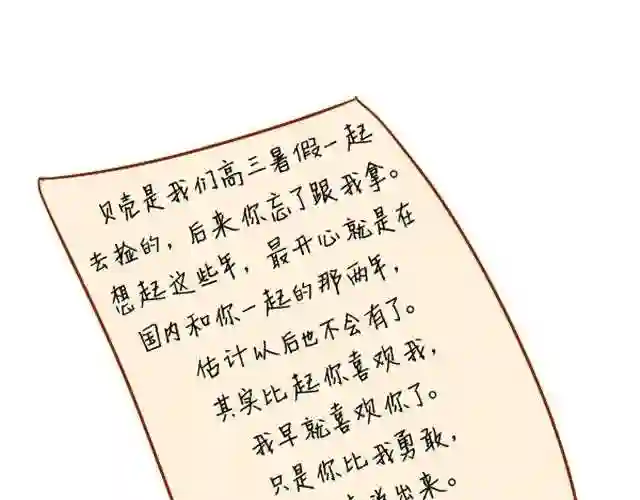 贝壳是我们高三暑假一起
去捡的，后来你忘了跟我拿。
想起这些年，最开心就是在
国内和你一起的那两年，
估计以后也不会有了。
其实比起你喜欢我，
我早就喜欢你了。
只是你比我勇敢，
说出来。